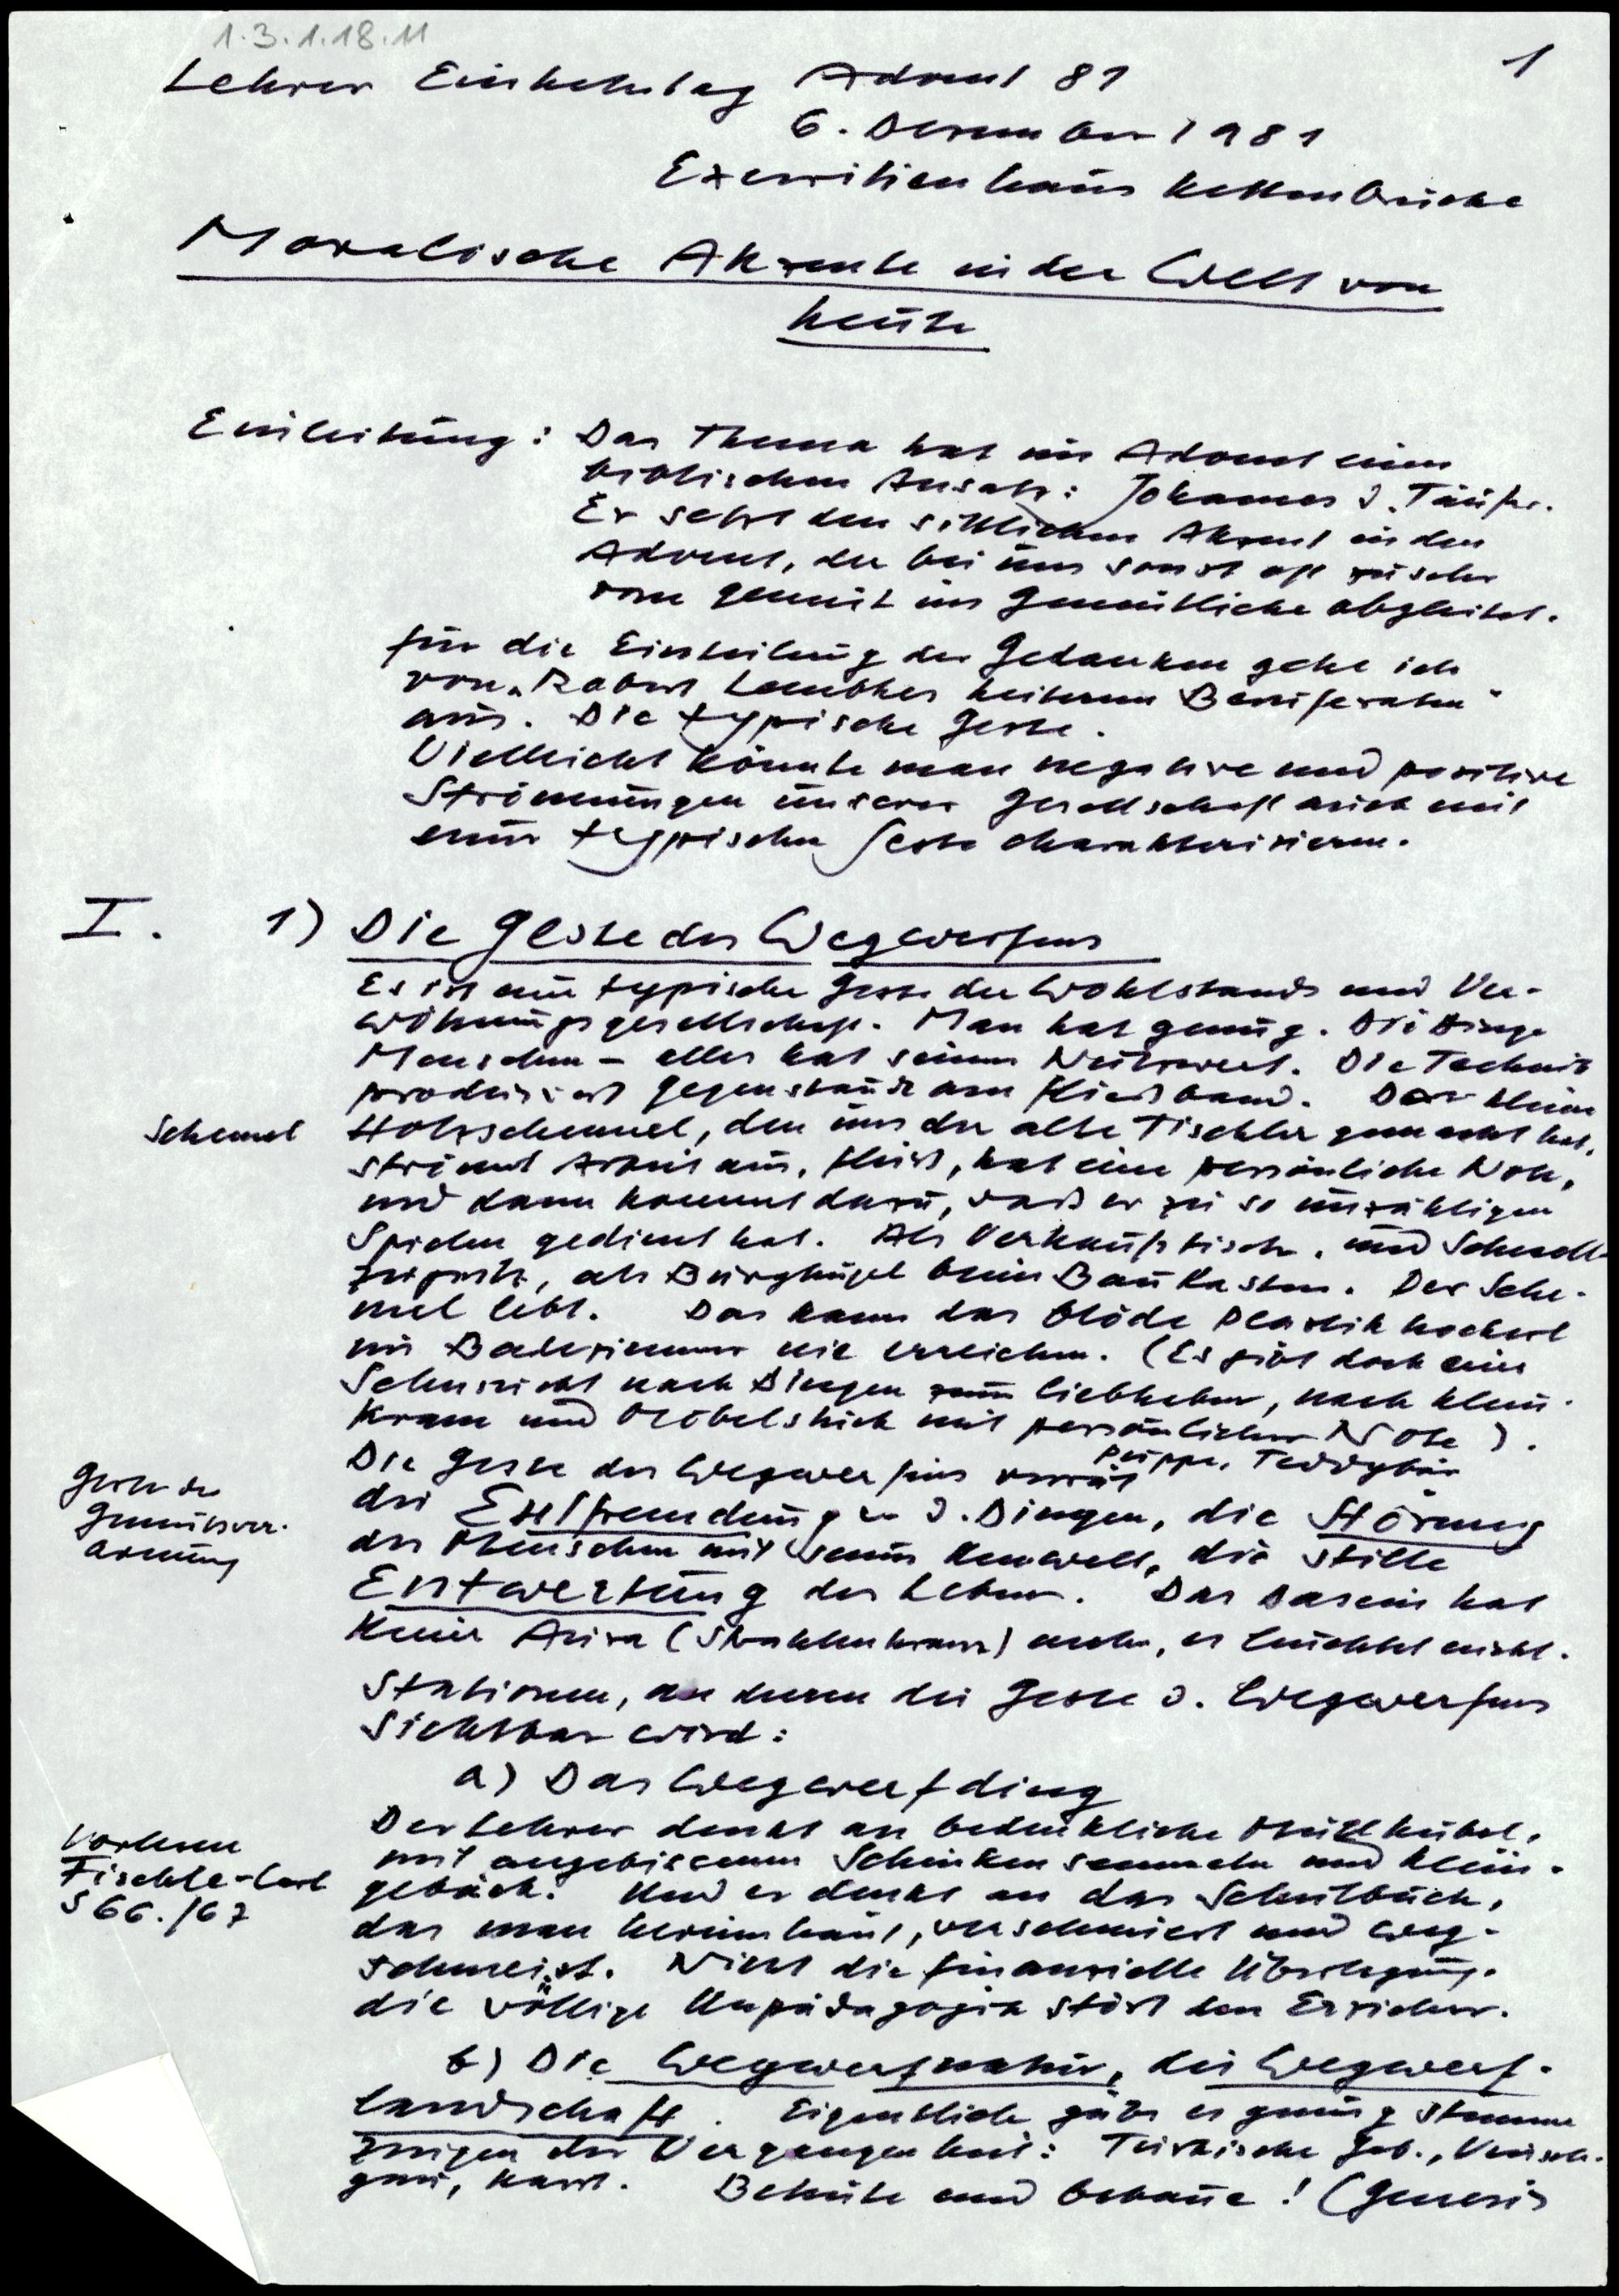 1.3.1.18.11
1
Lehrer Einkehrtag Advent 81
6. Dezember 1981
Exerzitienhaus Kettenbrücke
Moralische Akzente in der Welt von
heute
Einleitung: Das Thema hat im Advent einen
biblischen Ansatz: Johannes d. Täufer.
Er setzt den sittlichen Akzent in den
Advent, der bei uns sonst oft zu sehr
vom Gemüt ins Gemütliche abgleitet.
für die Einteilung der Gedanken gehe ich
von „Robert Lembkes heiterem Beruferaten"
aus. Die typische Geste.
Vielleicht könnte man negative und positive
Strömungen unserer Gesellschaft auch mit
einer typischen Geste charakterisieren.
I. 1) Die Geste des Wegwerfens
Es ist eine typische Geste der Wohlstands und Ver-
wöhnungsgesellschaft. Man hat genug. Die Dinge
Menschen - alles hat seinen Nutzwert. Die Technik
produziert Gegenstände am Fließband. Der kleine
Schemel
Holzschemel, den uns der alte Tischler gemacht hat,
strömt Arbeit aus, Fleiß, hat eine persönliche Note,
und dann kommt dazu, daß er zu so unzähligen
Spielen gedient hat. Als Verkaufstisch, und Schnell-
zugsputz, als Burghügel beim Baukasten. Der Sche-
mel lebt. Das kann das blöde Plastikhockerl
im Badezimmer nie erreichen. (Es gibt doch eine
Sehnsucht nach Dingen zum liebhaben, nach klein-
Kram und Möbelstück mit persönlicher Note).
Puppe, Teddybär
Die Geste des Wegwerfens verrät
Geste der
Gemütsver-
armung
die Entfremdung zu d. Dingen, die Störung
des Menschen mit seiner Umwelt, die stille
Entwertung des Lebens. Das Dasein hat
keine Aura (Strahlenkranz) mehr, es leuchtet nicht.
Stationen, an denen die Geste d. Wegwerfens
Sichtbar wird:
a) Das Wegwerfding
Der Lehrer denkt an bedenkliche Müllkübel,
Vorlesen
Fischle-Carl
S 66./67
mit angebissenen Schinkensemmeln und Klein-
gebäck. Und er denkt an das Schulbuch,
das man herumhaut, verschmiert und weg-
schmeißt. Nicht die finanzielle Überlegung.
die völlige Unpädagogik stört den Erzieher.
b) Die Wegwerfnatur, die Wegwerf-
landschaft. Eigentlich gäbe es genug stumme
Zeugen der Vergangenheit: Türkische Geb.,
Karst. Behüte und bebaue! (Genesis